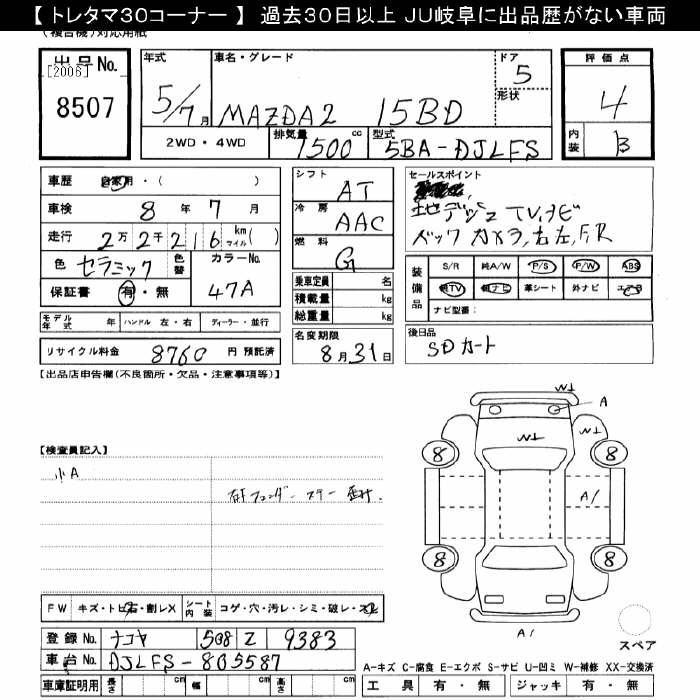 【 トレタマ30コーナー 】 過去30日以上 JU岐阜に出品歴がない車両
(複合機)対応用紙
出品No.
[2006]
8507
年式
5/7月
車名・グレード
MAZDA2 15BD
ドア
5
形状
評価点
4
内装
B
2WD・4WD
排気量
1500 cc
型式
5BA-DJLFS
車歴 自家用・( )
車検 8 年 7 月
走行 2万 2千 2 1 6 km マイル( )
色 セラミック
色替
カラーNo.
47A
保証書 有・無
シフト
AT
冷房
AAC
燃料
G
乗車定員 名
積載量 kg
総重量 kg
セールスポイント
地デジTV,ナビ
バックカメラ,右左,F,R
装備品
S/R 純A/W P/S P/W ABS
純TV 純ナビ 革シート 外ナビ エアB
ナビ型番:
モデル年式 年 ハンドル 左・右 ディーラー・並行
リサイクル料金 8760 円 預託済
名変期限
8月31日
後日品
SDカート
【出品店申告欄(不良箇所・欠品・注意事項等)】
【検査員記入】
小A
W1
A
W1
W1
8
8
A1
8
8
A1
スペア
FW キズ・トビ石・割レX
シート内装
コゲ・穴・汚レ・シミ・破レ・スレ
登録No. ナコヤ 508 Z 9383
車台No. DJLFS-805587
車庫証明用 長さ cm 幅 cm 高さ cm
A-キズ C-腐食 E-エクボ S-サビ U-凹ミ W-補修 XX-交換済
工具 有・無 ジャッキ 有・無